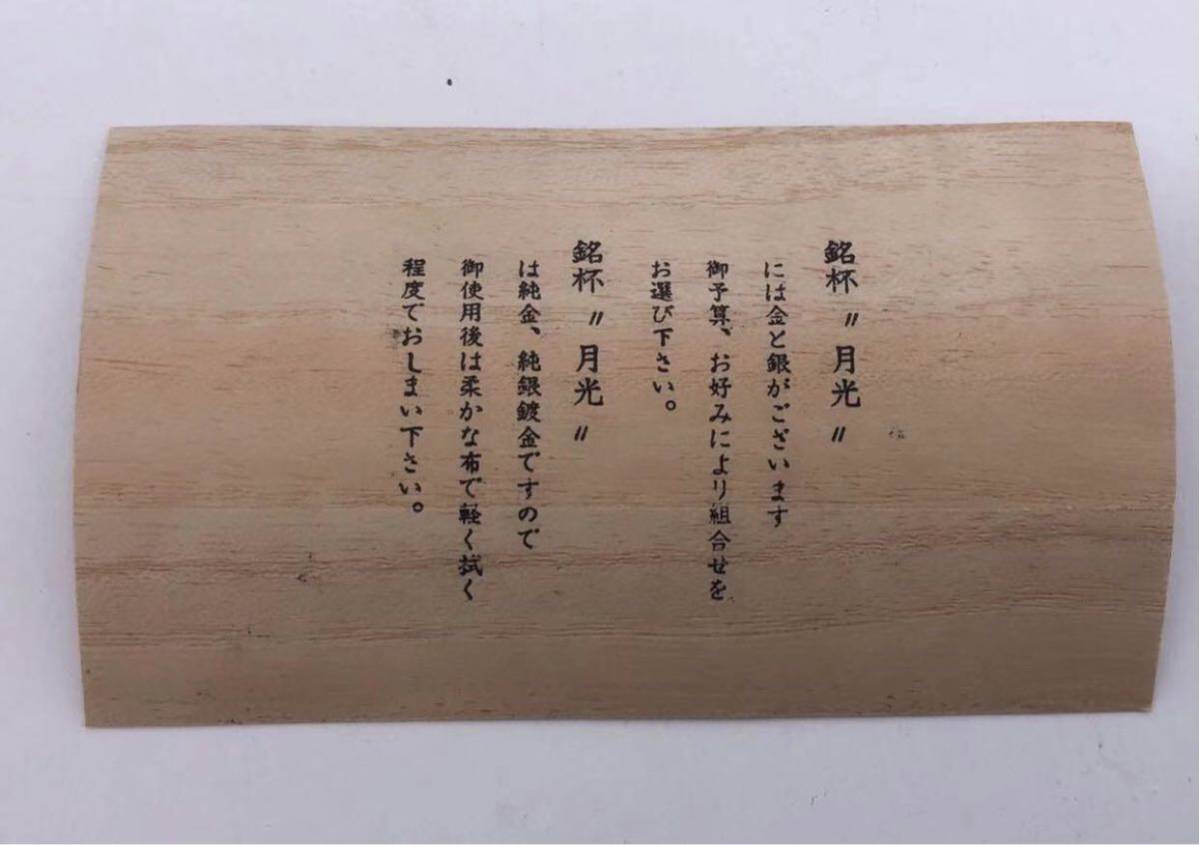 銘杯〃月光〃
には金と銀がございます
御予算、お好みにより組合せを
お選び下さい。
銘杯〃月光〃
は純金、純銀鍍金ですので
御使用後は柔かな布で軽く拭く
程度でおしまい下さい。